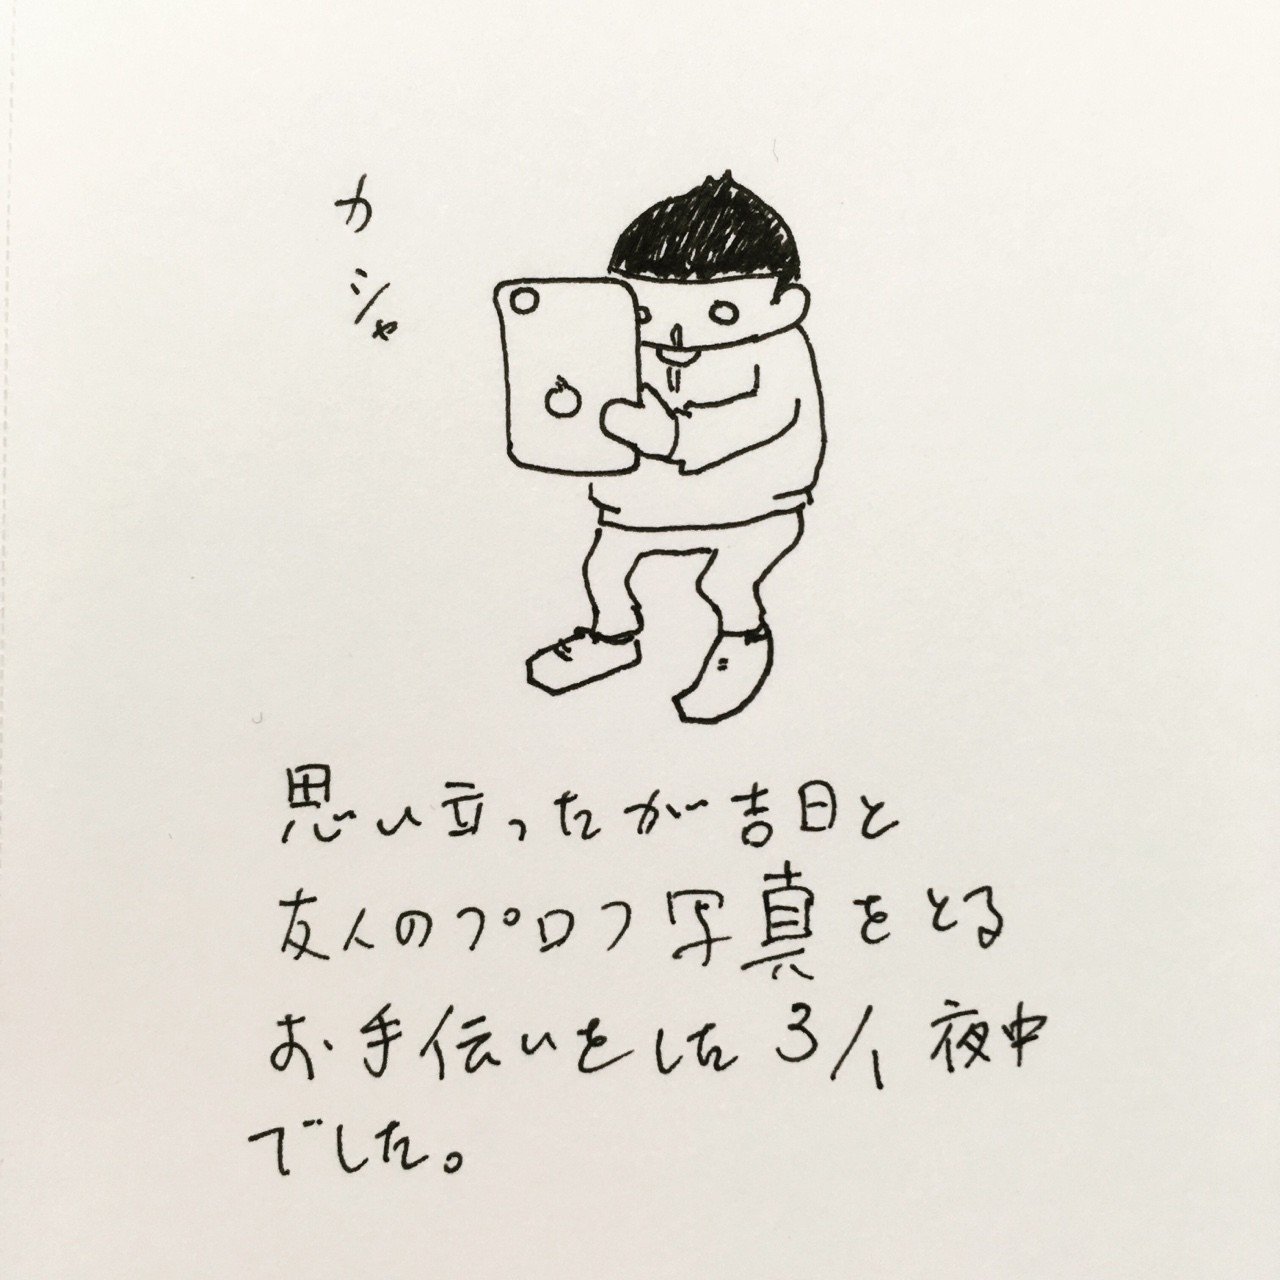 カシャ
思い立ったが吉日と
友人のプロフ写真をとる
お手伝いをした3/1夜中
でした。